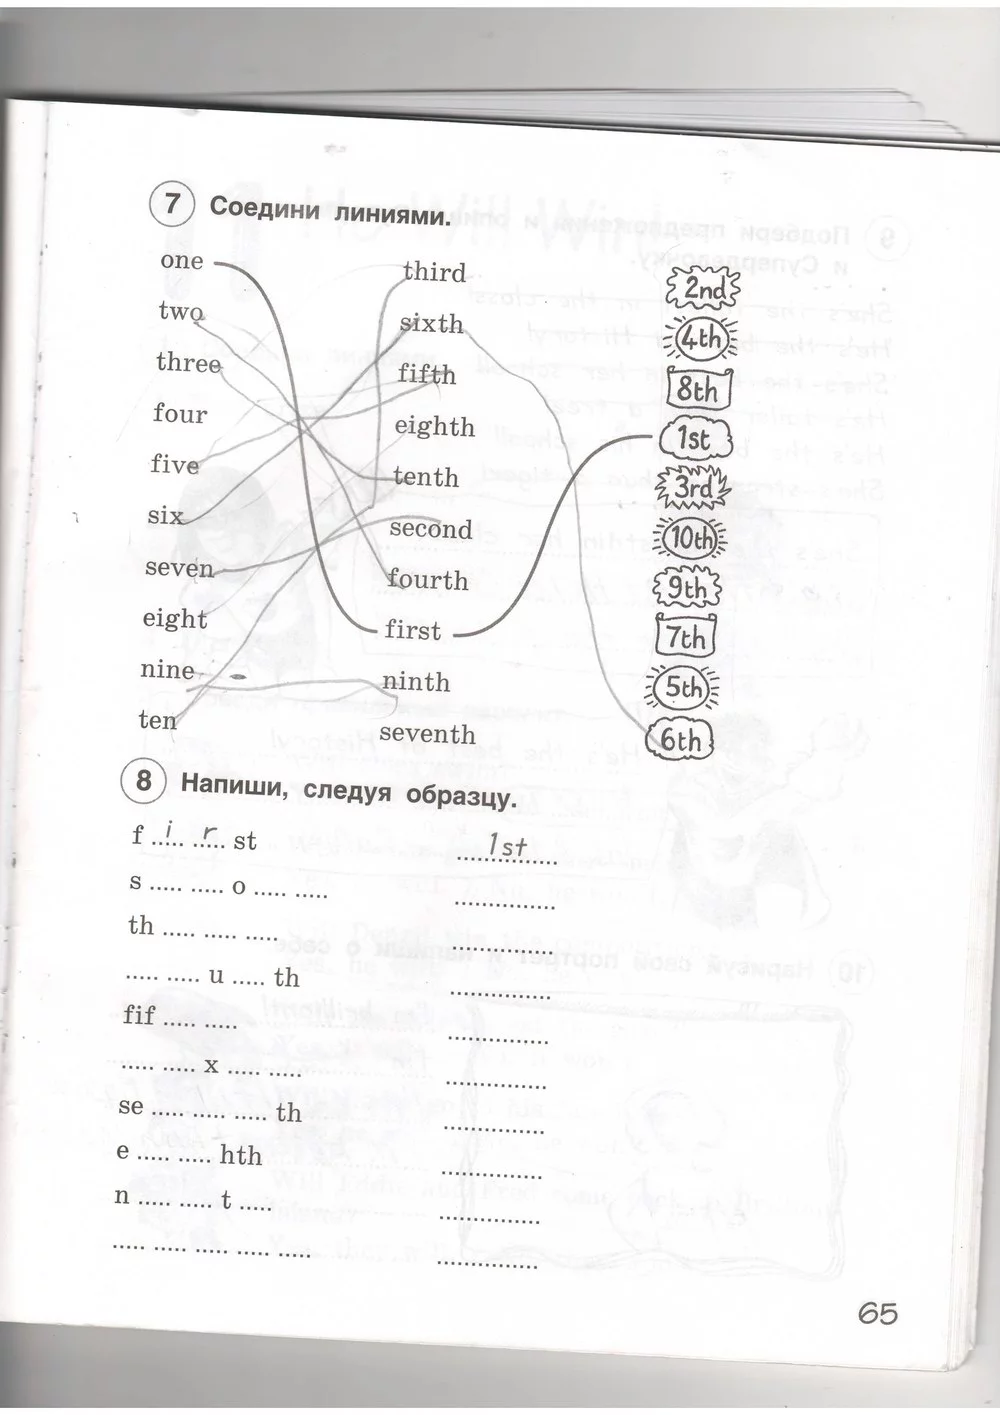 7 Соедини линиями.
one third 2nd
two sixth 4th
three fifth 8th
four eighth 1st
five tenth 3rd
six second 10th
seven fourth 9th
eight first 7th
nine ninth 5th
ten seventh 6th
8 Напиши, следуя образцу.
f ..i.. ..r.. st 1st
s ..... ..... o ..... ..... ..............
th ..... ..... ..... ..............
..... ..... u ..... th ..............
fif ..... ..... ..............
..... ..... x ..... ..... ..............
se ..... ..... ..... th ..............
e ..... ..... hth ..............
n ..... ..... t ..... ..............
..... ..... ..... ..... ..... ..............
65